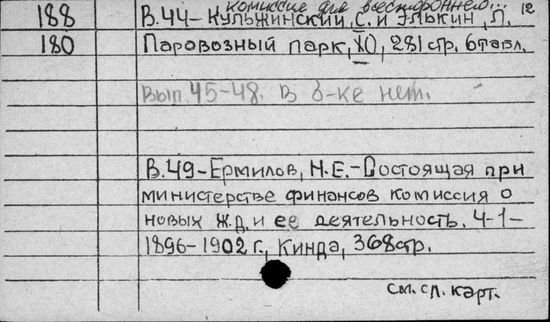 комиссие для всестороннего... 12
188 В.44-Кульжинский, С. и Элькин, Л.
180 Паровозный парк, XI), 281 стр. 6 табл.
Вып. 45-48. В б-ке нет.
В.49-Ермилов, Н.Е.-Состоящая при
министерстве финансов комиссия о
новых ж.д. и ее деятельность. Ч-1-
1896-1902 г., Кинда, 368 стр.
см. сл. карт.